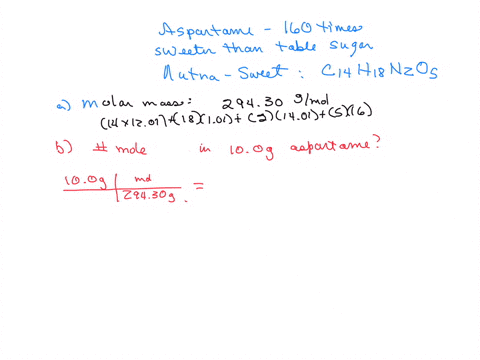 Aspartame - 160 times
sweeter than table sugar
Nutra-Sweet : C14 H18 N2 O5
a) molar mass: 294.30 g/mol
(14 x 12.01)+(18)(1.01)+(2)(14.01)+(5)(16)
b) # mole in 10.0g aspartame?
10.0g | mol
| 294.30g =